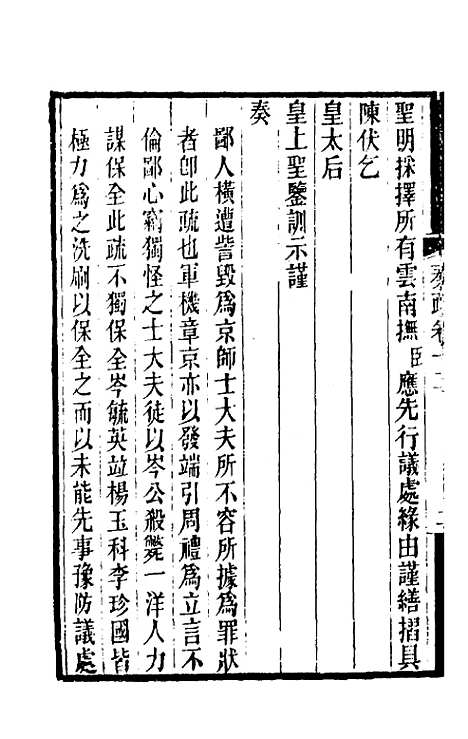 聖明採擇所有雲南撫臣應先行議處緣由謹繕摺具
陳伏乞
皇太后
皇上聖鑒訓示謹
奏
鄙人橫遭訾毀爲京師士大夫所不容所據爲罪狀
者卽此疏也軍機章京亦以發端引周禮爲立言不
倫鄙心竊獨怪之士大夫徒以岑公殺斃一洋人力
謀保全此疏不獨保全岑毓英竝楊玉科李珍國皆
極力爲之洗刷以保全之而以未能先事豫防議處